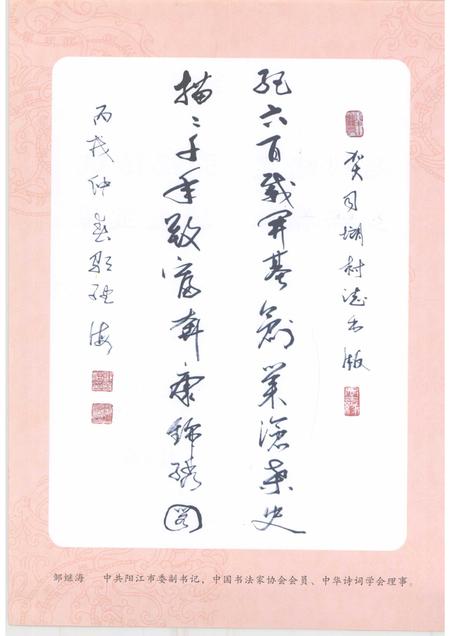 贺塘村志出版
纪六百载開基創業滄桑史
描二千年致富奔康锦绣图
丙戌仲春邹继海
邹继海 中共阳江市委副书记，中国书法家协会会员、中华诗词学会理事。